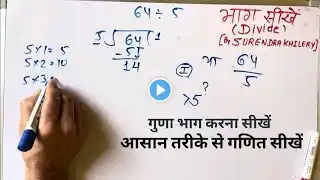 64 ÷ 5
भाग सीखें
(Divide)
[By SURENDRA KHILERY]
5×1= 5
5×2= 10
5×3=
5) 64 (1
-5↓
14
① भा 64/5
>5
गुणा भाग करना सीखें
आसान तरीके से गणित सीखें